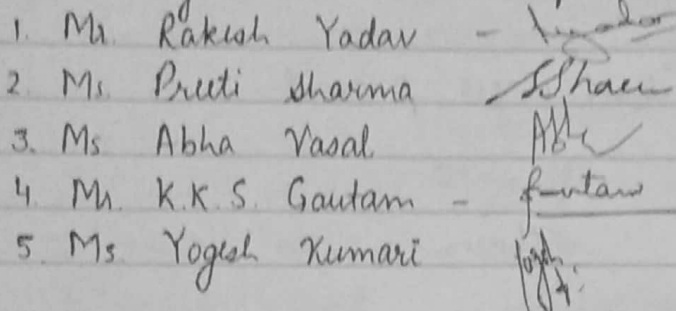 1. Mr. Rakesh Yadav -
2. Ms. Preeti Sharma
3. Ms Abha Vasal
4. Mr. K.K.S. Gautam -
5. Ms Yogesh Kumari